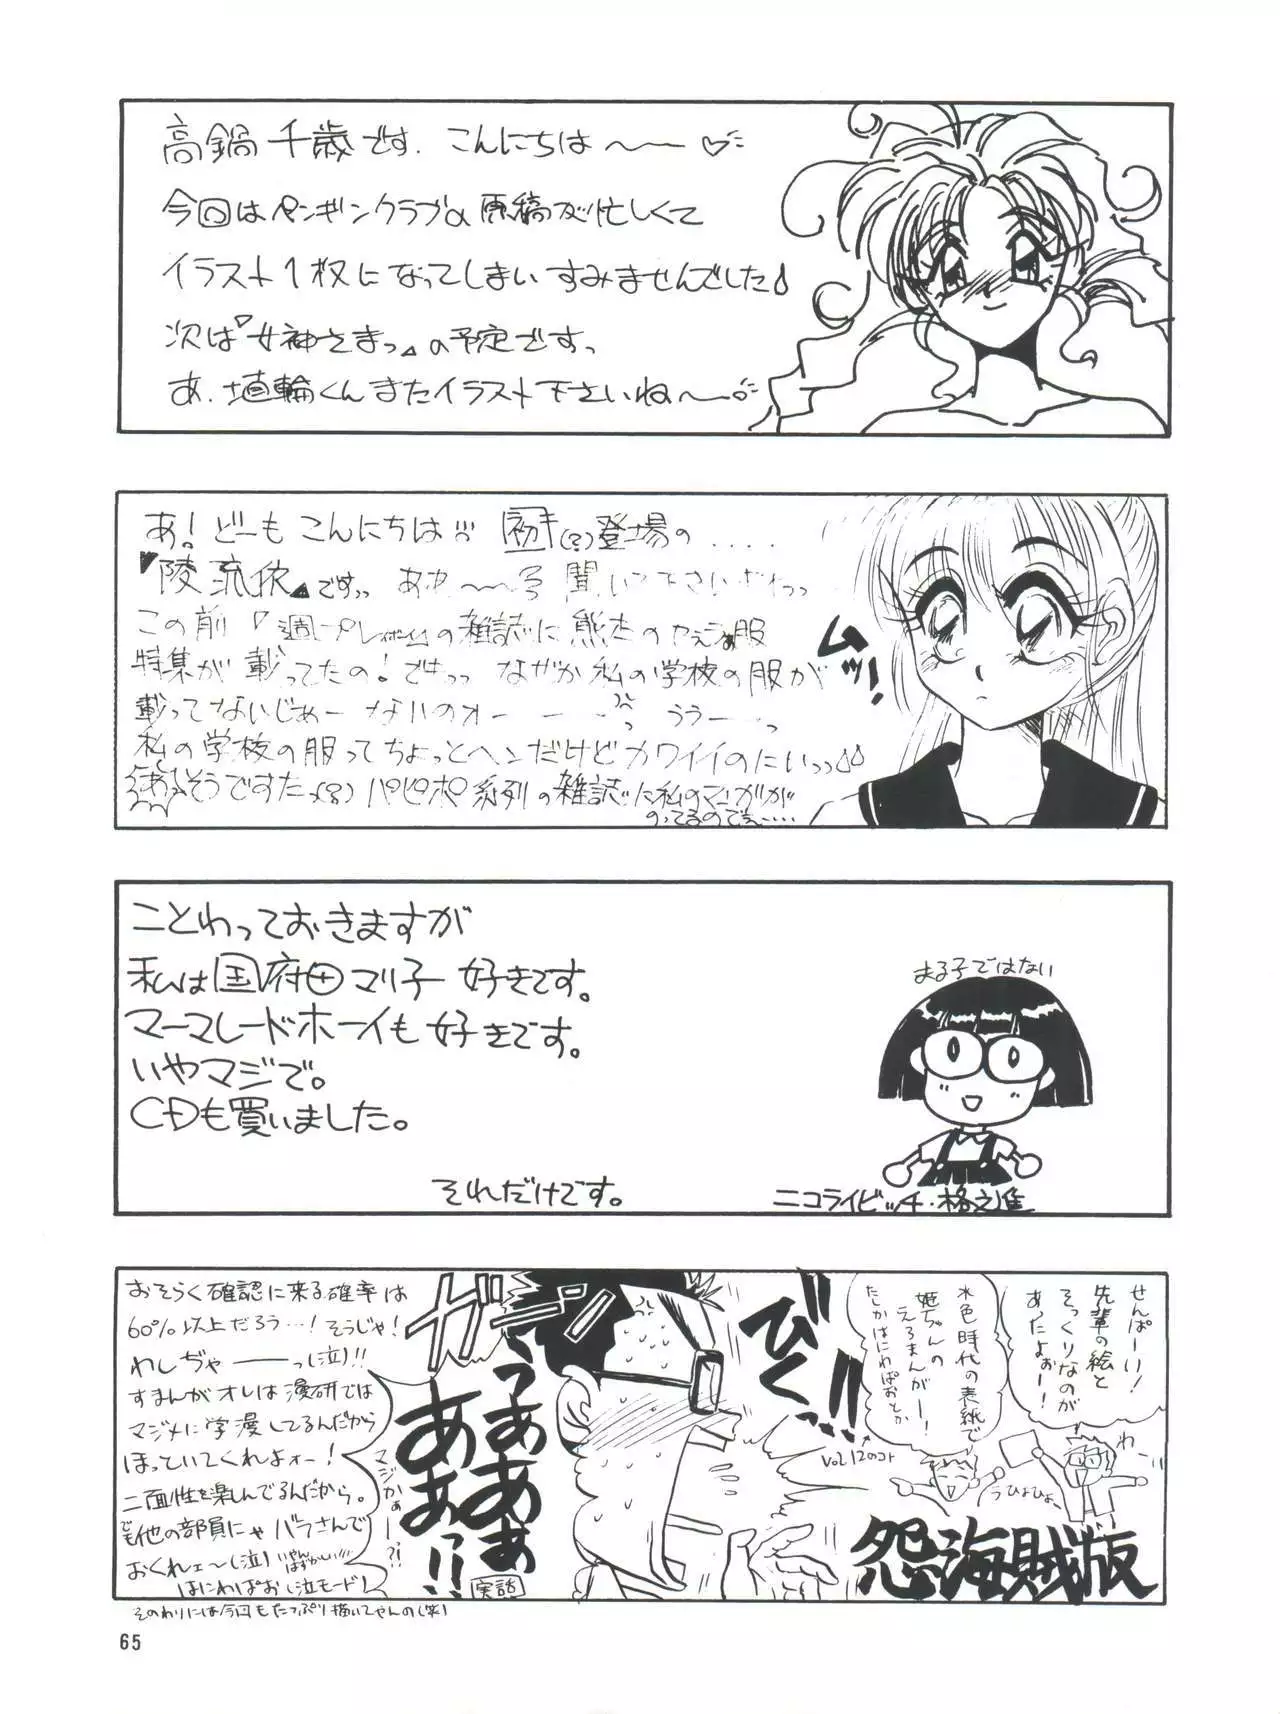 高鍋千歳です. こんにちは〜〜♡
今回はペンギンクラブの原稿が忙しくて
イラスト1枚になってしまいすみませんでした
次は『女神さまっ』の予定ですっ
あ. 埴輪くんまたイラスト下さいね〜〜
あ!どーもこんにちは!!! 初(?)登場の....
『陵流依』ですっっ あぁ〜〜 聞いて下さい
この前『週プレイボーイ』の雑誌に熊本の
特集が載ってたの!でもっっ なぜか私の学校の服が
載ってないじぁーないのォー ううーーっ
私の学校の服ってちょっとヘンだけどカワイイのにいっっ
あ、そうですた(?) パピポ系列の雑誌に私のマンガが
のってるのでぇ……
ムッ!
ことわっておきますが
私は国府田マリ子好きです。
マーマレードボーイも好きです。
いやマジで。
CDも買いました。
それだけです。
まる子ではない
ニコライビッチ・格之進
せんぱーい!
先輩の絵と
そっくりなのが
あったよぉー!
わー
水色時代の表紙で
姫ちゃんの
えろまんがー!
たしかはにわぱおとか
Vol.12のコト
うひょひょ〜
怨・海賊版
びくっ!!
ガーン
うぁぁあぁ
あぁあぁっ!!
実話
マジかぁーー?!
おそらく確認に来る確率は
60%以上だろう…!そうじゃ!
わしぢゃーーーっ(泣)!!
すまんがオレは漫研では
マジメに学漫してるんだから
ほっていてくれよォー!
二面性を楽しんでるんだから。
でも他の部員にゃバラさんで
おくれェ〜(泣) いやんはずかしい!!!
はにわぱお(泣モード)
そのわりには今回もたっぷり描いてやんの(笑)
65